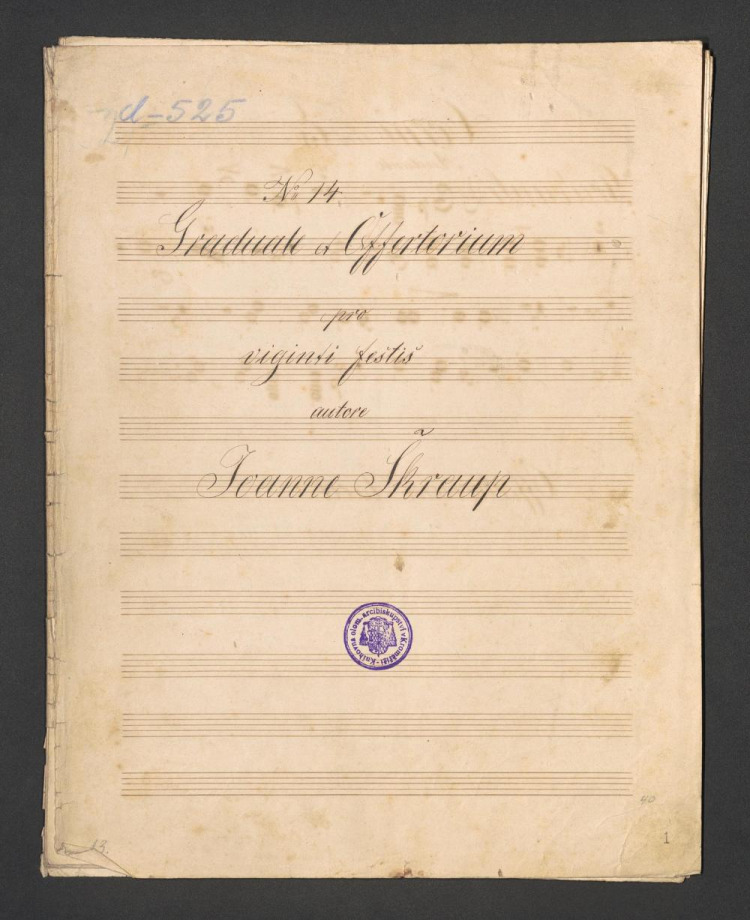 d-525
No 14.
Graduale et Offertorium
pro
viginti festis
autore
Joanne Škraup
Knihovna olom. arcibiskupství v Kroměříži
40
1
13.